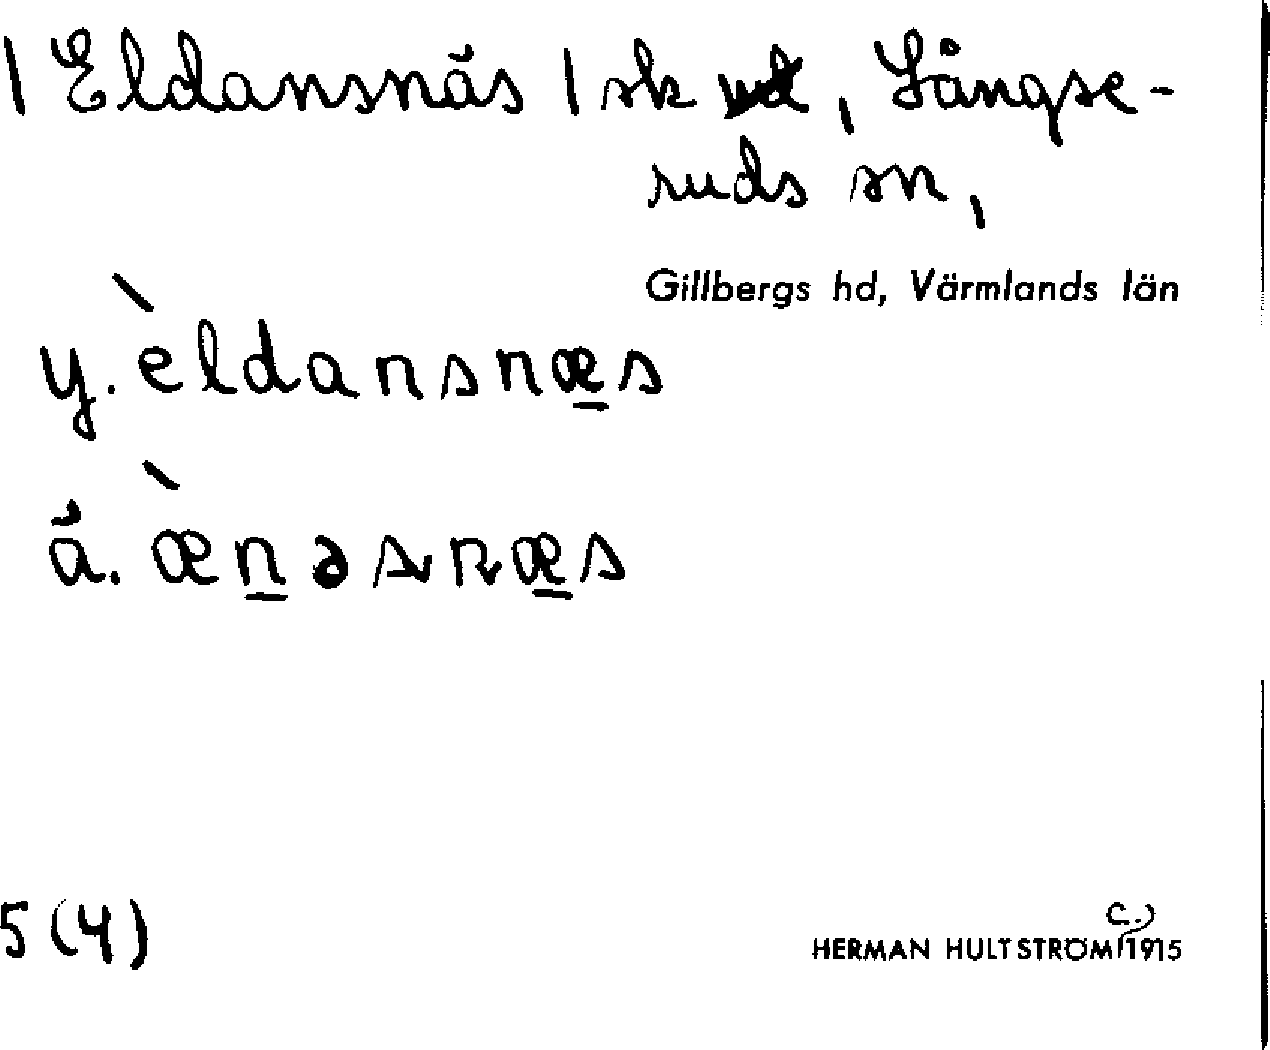 | Eldansnäs | sk , Långse-
ruds sn,
Gillbergs hd, Värmlands län
y. èldansnæs
ä. æ̀nəsnæs
5 (4)
C.)
HERMAN HULTSTRÖM 1915